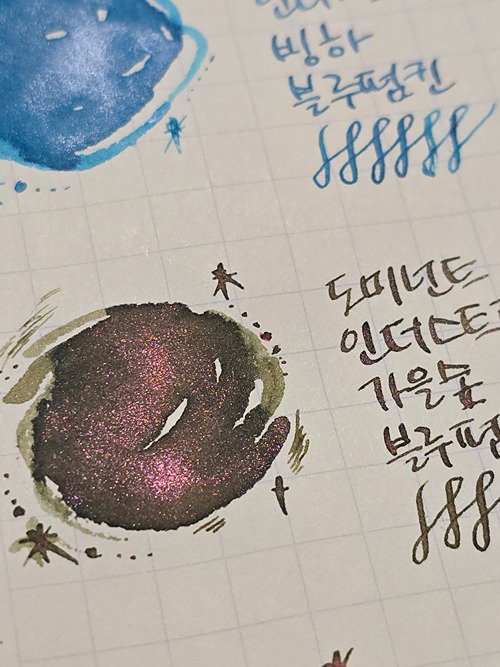 빙하
블루펌킨
도미넌트
인더스트
가을숲
블루펌